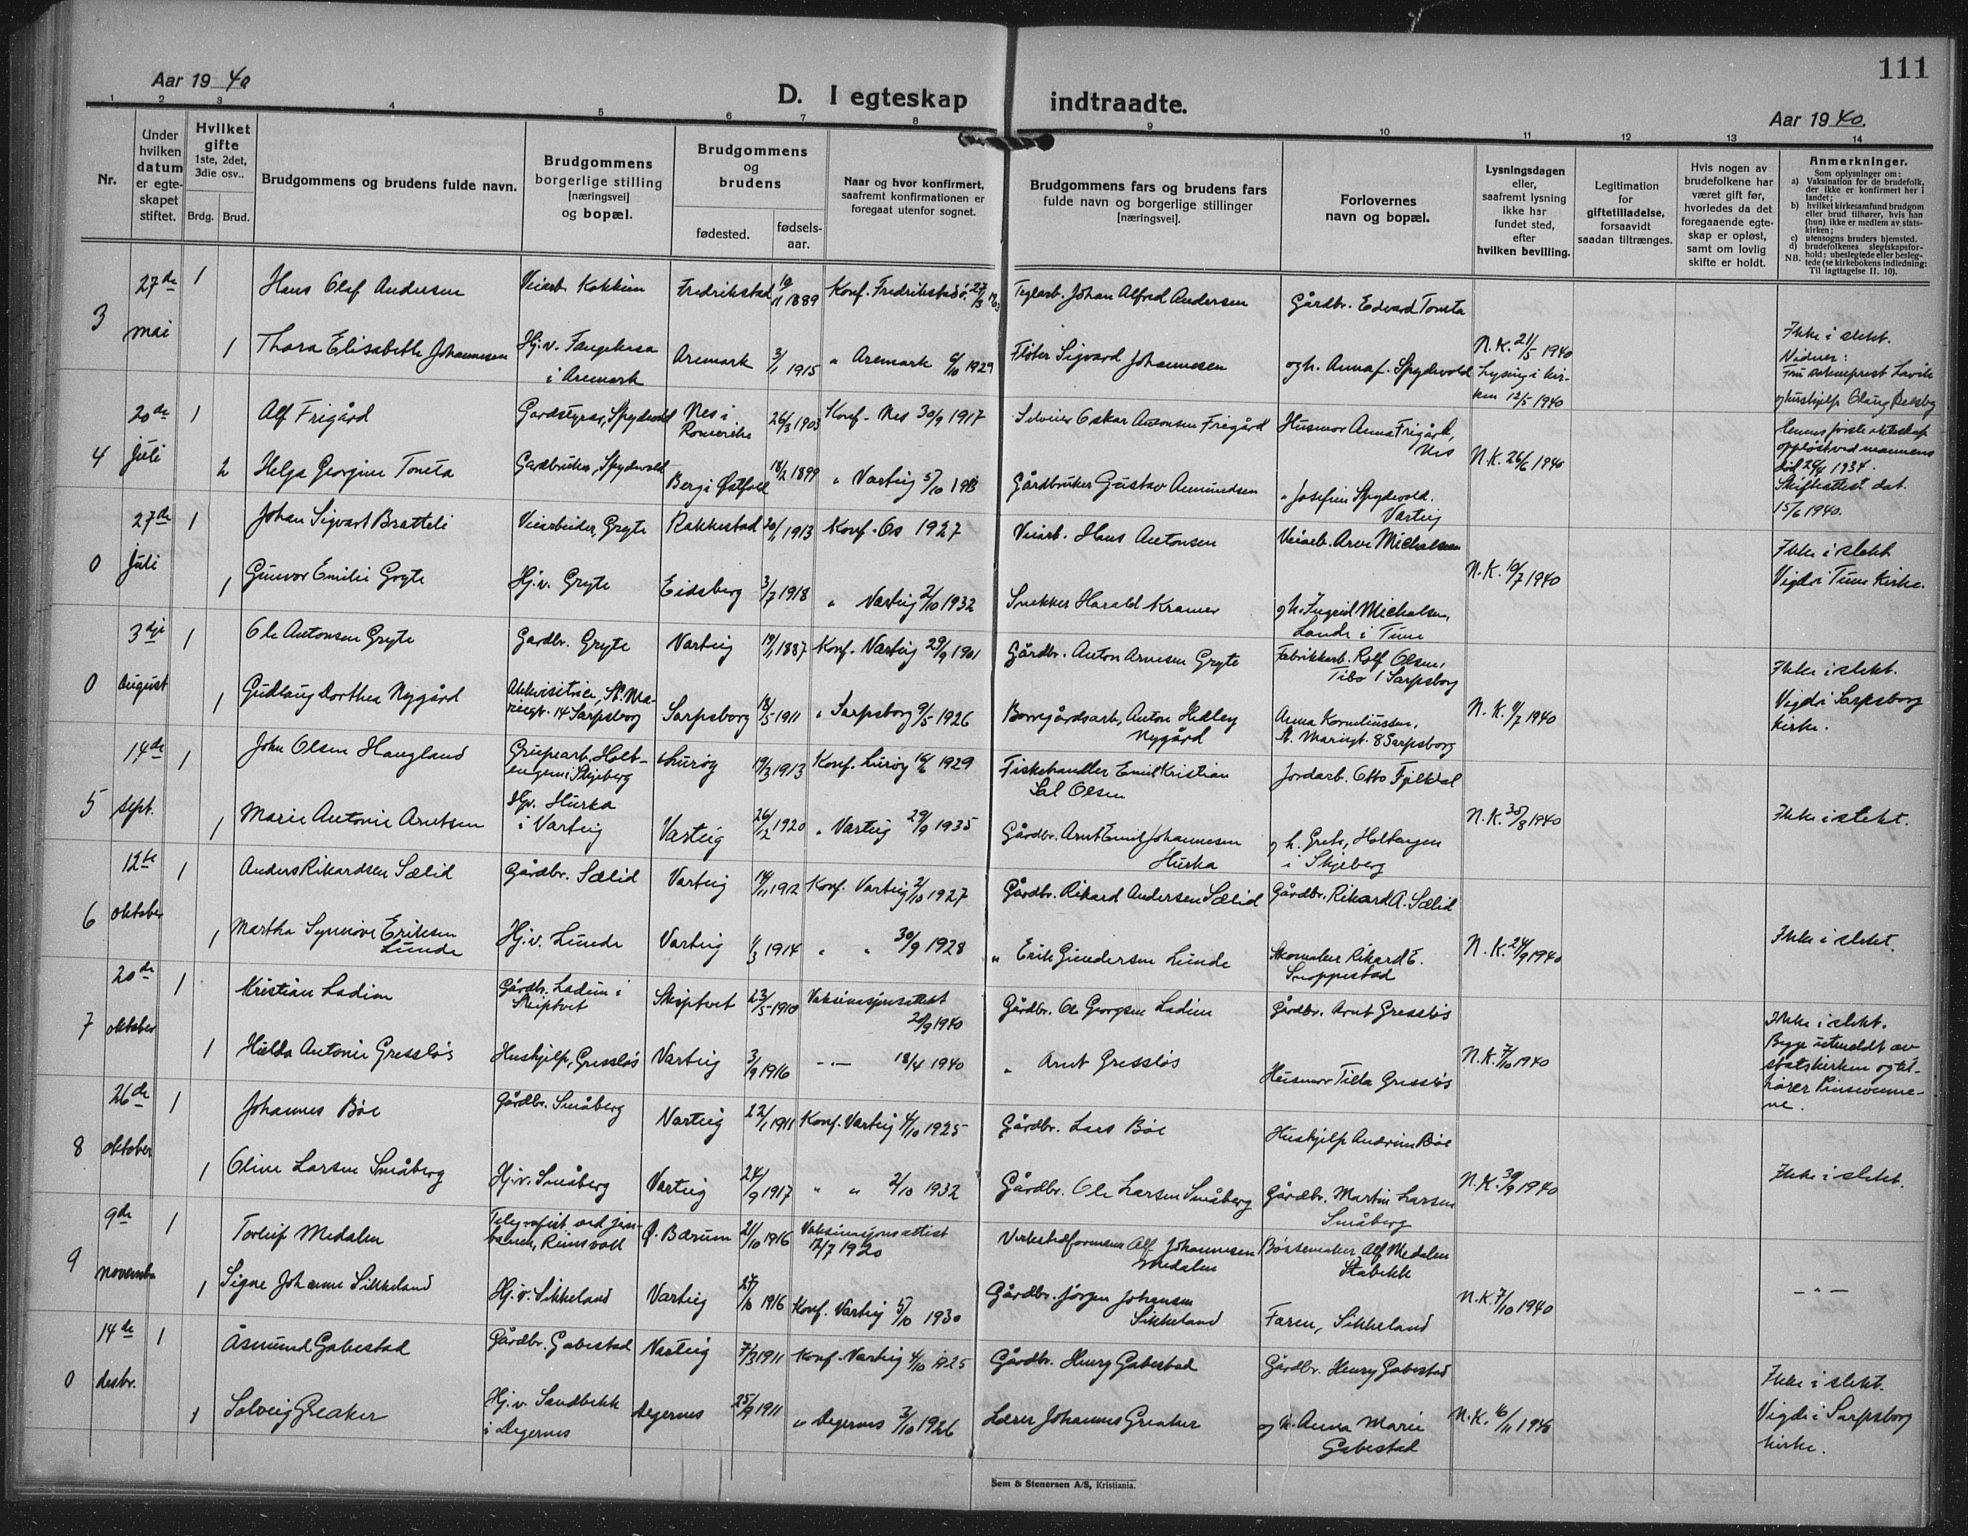 111
Aar 1940
D. I egteskap indtraadte.
Aar 1940.
1 2 3 4 5 6 7 8 9 10 11 12 13 14
Nr.
Under
hvilken
datum
er egte-
skapet
stiftet.
Hvilket
gifte
1ste, 2det,
3die osv..
Brdg. Brud.
Brudgommens og brudens fulde navn.
Brudgommens
borgerlige stilling
[næringsvei]
og bopæl.
Brudgommens
og
brudens
fødested.
fødsels-
aar.
Naar og hvor konfirmert,
saafremt konfirmationen er
foregaat utenfor sognet.
Brudgommens fars og brudens fars
fulde navn og borgerlige stillinger
[næringsvei].
Forlovernes
navn og bopæl.
Lysningsdagen
eller,
saafremt lysning
ikke har
fundet sted,
efter
hvilken bevilling.
Legitimation
for
giftetilladelse,
forsaavidt
saadan tiltrænges.
Hvis nogen av
brudefolkene har
været gift før,
hvorledes da det
foregaaende egte-
skap er opløst,
samt om lovlig
skifte er holdt.
Anmerkninger.
Som oplysninger om:
a) Vaksination for de brudefolk,
der ikke er konfirmert her i
landet;
b) hvilket kirkesamfund brudgom
eller brud tilhører, hvis han
(hun) ikke er medlem av stats-
kirken;
c) utensogns bruders hjemsted.
d) brudefolkenes slegtskapsfor-
hold: ubeslegtede eller besleg-
tede (se kirkebokens indledning:
NB. Til iagttagelse II. 10).
3
27de
mai
1 Hans Olef Andersen
Veiarb. Kokkim
Fredrikstad 19/11 1889
Konf. Fredrikstad
Teglarb. Johan Alfred Andersen
Gårdbr. Edvard Tomta
1 Thora Elisabeth Johannesen
Hj. v. Fangekasa
i Aremark
Aremark 3/1 1915
" Aremark 6/10 1929
Fløter Sigvard Johannesen
og h. Anna f. Spydevold
N.K. 21/5 1940
Lysing i kir-
ken 12/5 1940
Ikke i slekt.
Vidner:
4
20de
juli
1 Alf Frigård
Gardstyrar, Spydevold
Nes i
Romerike
26/3 1903
Konf. Nes 30/9 1917
Oskar Antonsen Frigård
Husmor Anna Frigård,
Nes
2 Helga Georgine Tomta
Gardbruker, Spydevold
Berg i Østfold
18/2 1899
" Varteig 5/10 1913
Gårdbruker Gustav Amundsen
" Josefine Spydevold.
Varteig
N.K. 26/6 1940
oppløst ved mannens
død 29/4 1934.
Skifteattest dat.
15/6 1940.
0
27de
juli
1 Johan Sigvart Bratteli
Veiarbeider, Gryte
Rakkestad 20/1 1913
Konf. Os 1927
Veiarb. Hans Antonsen
Veiarb. Arve Michalsen
1 Gunvor Emilie Gryte
Hj. v. Gryte
Eidsberg 3/7 1918
" Varteig 2/10 1932
Snekker Harald Kramer
og h. Ingrid Michalsen,
Lande i Tune
N.K. 10/7 1940
Ikke i slekt.
Vigd i Tune kirke.
0
3dje
august
1 Ole Antonsen Gryte
Gardbr. Gryte
Varteig 19/1 1887
Konf. Varteig 29/9 1901
Gårdbr. Anton Arnesen Gryte
Fabrikkarb. Rolf Olsen,
Tibo i Sarpsborg
1 Gudlaug Dorthea Nygård
Akkvisitrise, St. Ma-
riegt. 14 Sarpsborg
Sarpsborg 18/5 1911
" Sarpsborg 9/5 1926
Borregårdsarb. Anton Hedley
Nygård
Anna Korneliussen,
St. Mariegt. 8 Sarpsborg
N.K. 9/7 1940
Ikke i slekt.
Vigd i Sarpsborg
kirke.
5
14de
sept.
1 John Olsen Haugland
Grubearb. Holt-
engen i Skjeberg
Lurøy 19/3 1913
Konf. Lurøy 1929
Fiskehandler Emil Kristian
Sal Olsen
Jordarb. Otto Fjelldal
1 Marie Antonie Arntsen
Hj.v. Hurka
i Varteig
Varteig 26/12 1920
" Varteig 29/9 1935
Gårdbr. Arnt Emil Johannesen
Hurka
og h. Grete, Holtengen
i Skjeberg
N.K. 30/8 1940
Ikke i slekt.
6
12te
oktober
1 Anders Rikardsen Sælid
Gårdbr. Sælid
Varteig 14/11 1912
Konf. Varteig 2/10 1927
Gårdbr. Rikard Andersen Sælid
Gårdbr. Rikard A. Sælid
1 Martha Synnøve Eriksen
Lunde
Hj. v. Lunde
Varteig 1/3 1914
" " 30/9 1928
" Erik Gundersen Lunde
Skomaker Rikard E.
Snoppestad
N.K. 24/9 1940
Ikke i slekt.
7
20de
oktober
1 Kristian Ladim
Gårdbr. Ladim i
Skiptvet
Skiptvet 23/5 1910
Vaksinasjonsattest
20/9 1940
Gårdbr. Ole Georgsen Ladim
Gårdbr. Arnt Gressløs
1 Hulda Antonie Gressløs
Hushjelp, Gressløs
Varteig 3/9 1916
-"- 18/4 1940
" Arnt Gressløs
Husmor Tilla Gressløs
N.K. 7/10 1940
Ikke i slekt.
Begge utmeldt av
statskirken og til-
hører Pinsevenne-
ne.
8
26de
oktober
1 Johannes Bøe
Gårdbr. Småberg
Varteig 22/1 1911
Konf. Varteig 4/10 1925
Gårdbr. Lars Bøe
Hushjelp Andrine Bøe
1 Oline Larsen Småberg
Hj. v. Småberg
Varteig 24/9 1917
" " 2/10 1932
Gårdbr. Ole Larsen Småberg
Gårdbr. Martin Larsen
Småberg
N.K. 30/9 1940
Ikke i slekt.
9
9de
november
1 Torleif Medalen
Telegrafist ved jern-
banen,
Ø. Bærum 21/10 1916
Vaksinasjonsattest
12/7 1920
Verkstedformann Alf Johannesen
Medalen
Børsemaker Alf Medalen
Stabekk
1 Signe Johanne Sikkeland
Hj. v. Sikkeland
Varteig 27/10 1916
Konf. Varteig 5/10 1930
Gårdbr. Jørgen Johansen
Sikkeland
Faren, Sikkeland
N.K. 7/10 1940
-"-
0
14de
desbr.
1 Åsmund Gabestad
Gårdbr. Gabestad
Varteig 7/3 1911
Konf. Varteig 4/10 1925
Gårdbr. Henry Gabestad
Gårdbr. Henry Gabestad
1 Solveig Greaker
Hj. v. Sandbekk
i Degernes
Degernes 25/9 1911
" Degernes 3/10 1926
Lærer Johannes Greaker
og h. Anna Marie
Gabestad
N.K. 16/11 1940
Ikke i slekt.
Vigd i Sarpsborg
kirke.
Sem & Stenersen A/S, Kristiania.